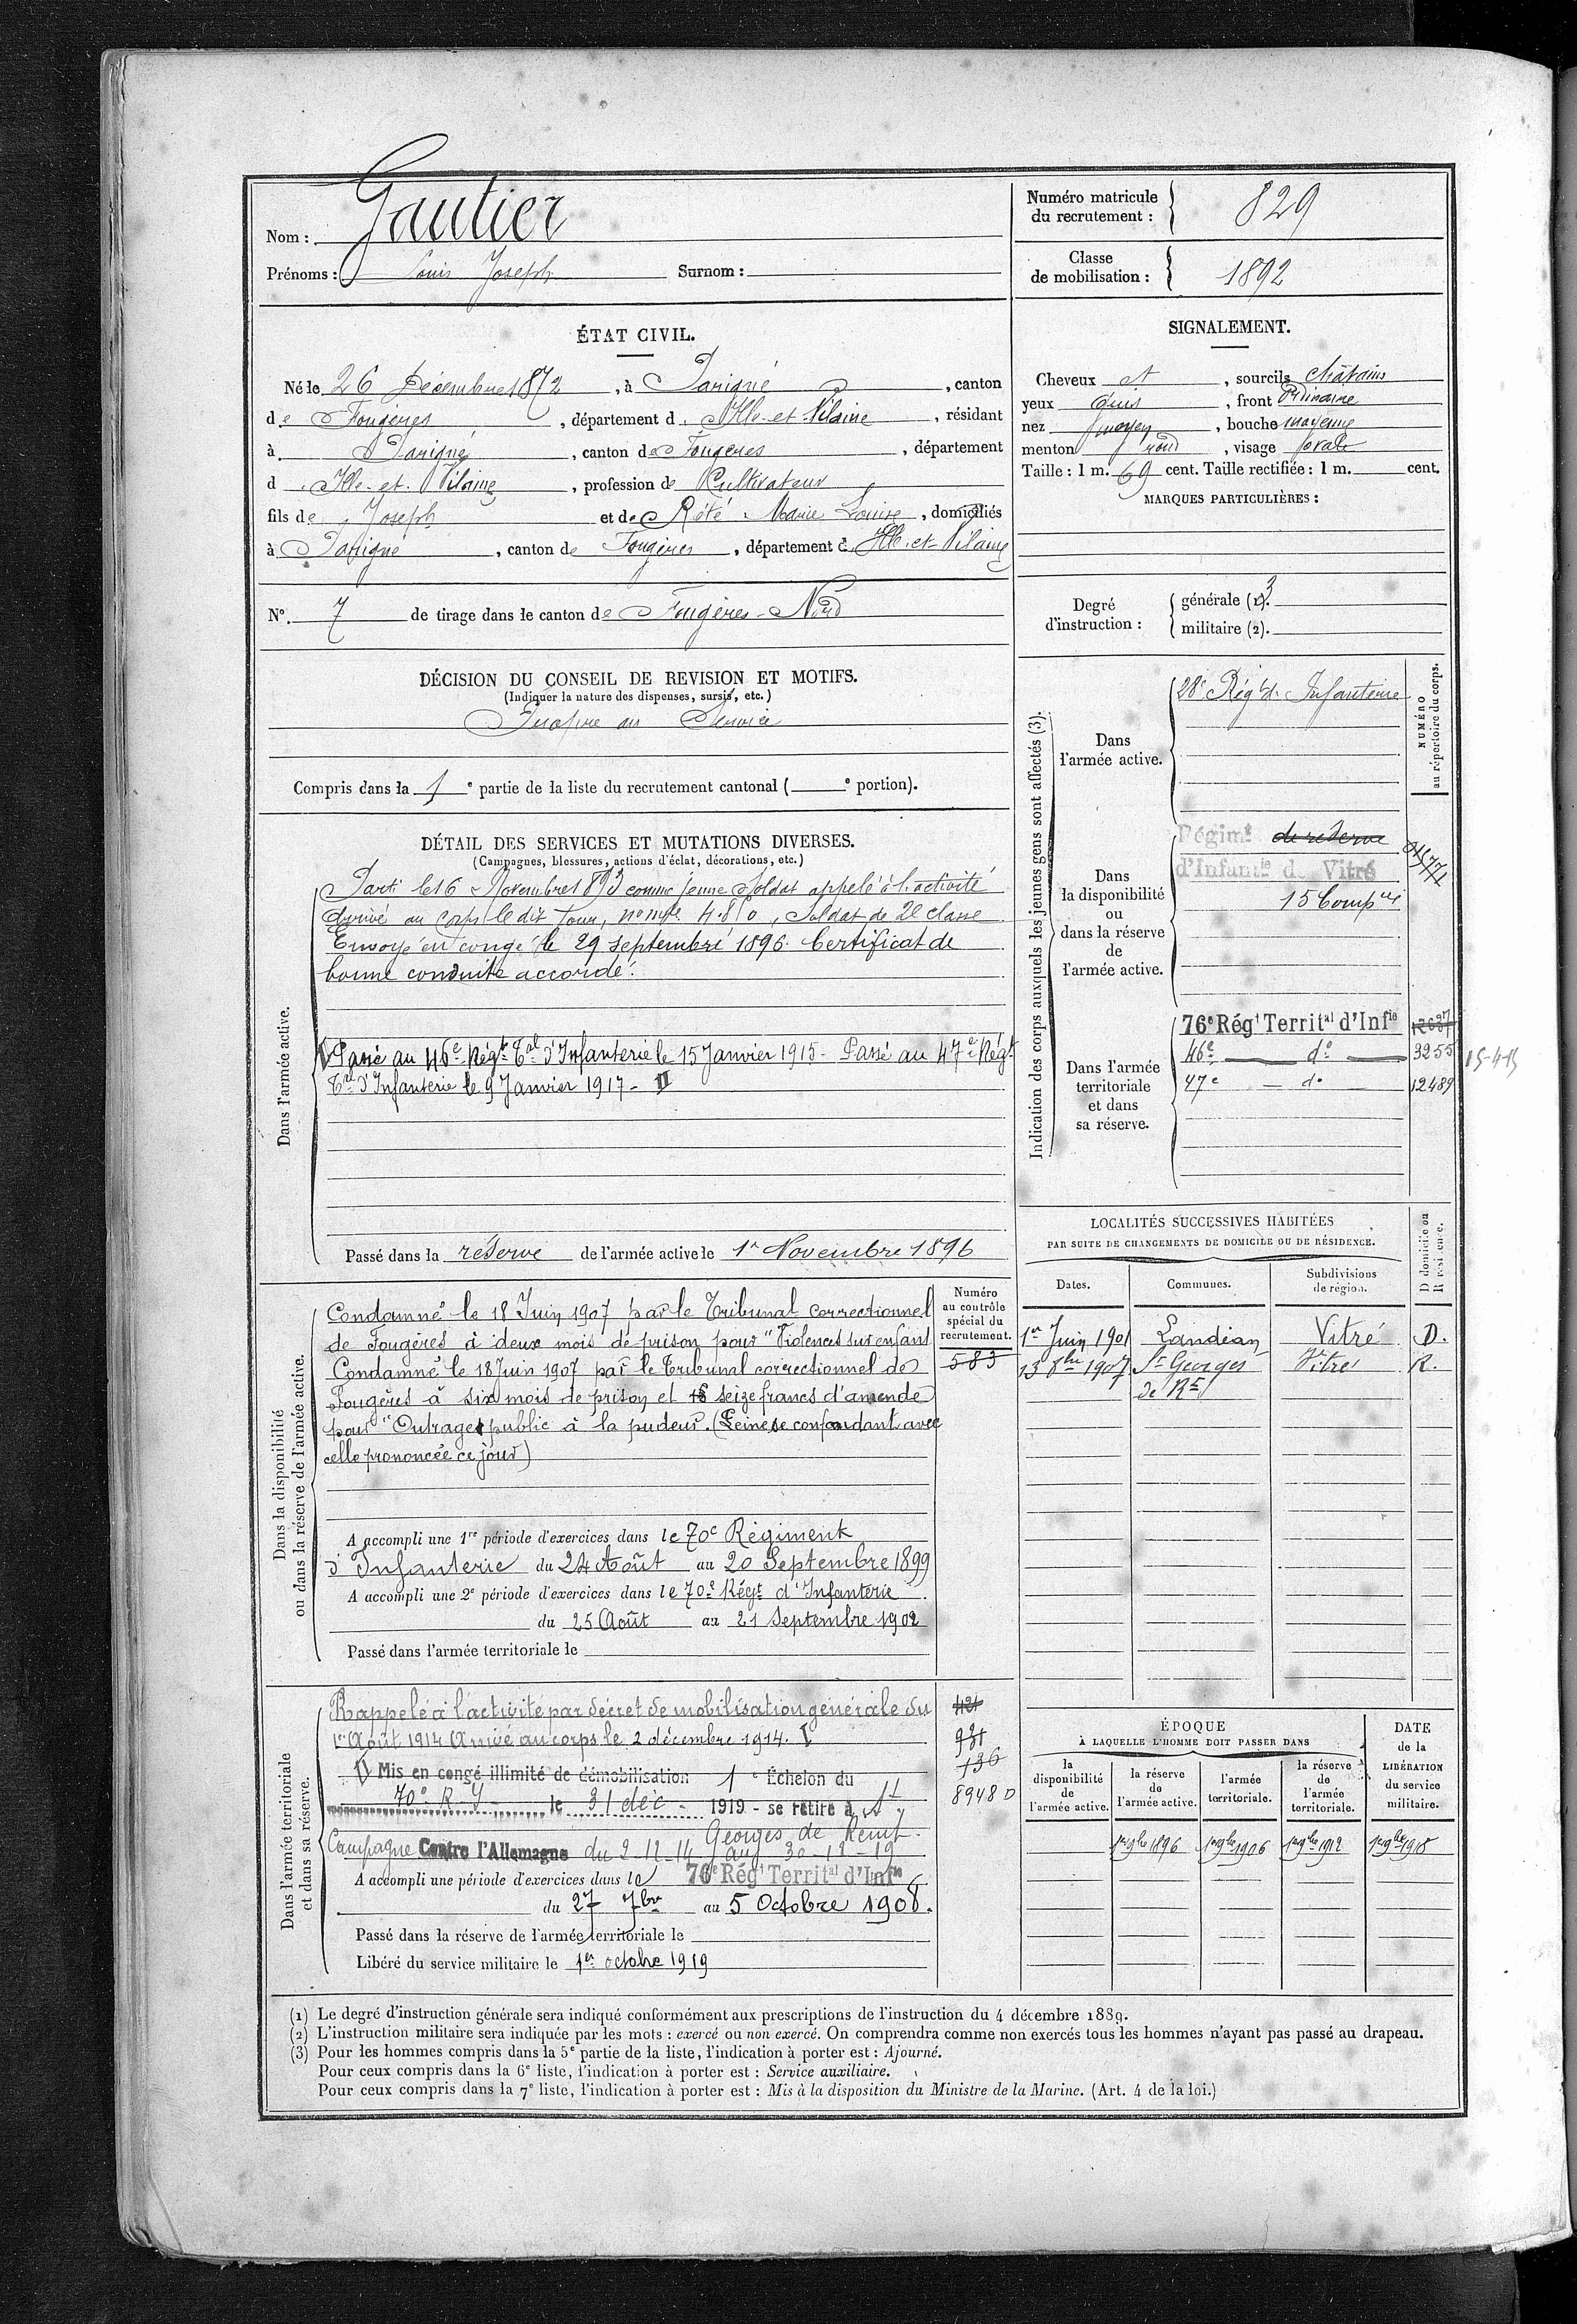 Nom : Gautier
Prénoms : Louis Joseph Surnom :
Numéro matricule du recrutement : 829
Classe de mobilisation : 1892
ÉTAT CIVIL.
Né le 26 Décembre 1872, à Parigné, canton
de Fougères, département d'Ille-et-Vilaine, résidant
à Parigné, canton de Fougères, département
d'Ille-et-Vilaine, profession de Cultivateur
fils de Joseph et de Rété Marie Louise, domiciliés
à Parigné, canton de Fougères, département d'Ille-et-Vilaine
N°. 7 de tirage dans le canton de Fougères-Nord
SIGNALEMENT.
Cheveux et, sourcils châtains
yeux Gris, front Ordinaire
nez moyen, bouche moyenne
menton rond, visage ovale
Taille : 1 m. 69 cent. Taille rectifiée : 1 m. cent.
MARQUES PARTICULIÈRES :
Degré d'instruction :
générale (1). 3
militaire (2).
DÉCISION DU CONSEIL DE REVISION ET MOTIFS.
(Indiquer la nature des dispenses, sursis, etc.)
Propre au Service
Compris dans la 1e partie de la liste du recrutement cantonal ( e portion).
DÉTAIL DES SERVICES ET MUTATIONS DIVERSES.
(Campagnes, blessures, actions d'éclat, décorations, etc.)
Dans l'armée active.
Parti le 16 Novembre 1893 comme jeune Soldat appelé à l'activité
Arrivé au corps le dit jour, n° mle 4.850, Soldat de 2e classe
Envoyé en congé le 29 septembre 1896. Certificat de
bonne conduite accordé.
Passé au 46e Régt Tal d'Infanterie le 15 Janvier 1915 - Passé au 47e Régt
Tal d'Infanterie le 9 Janvier 1917 - II
Passé dans la réserve de l'armée active le 1r Novembre 1896
Indication des corps auxquels les jeunes gens sont affectés (3).
NUMÉRO au répertoire du corps.
Dans l'armée active.
28e Régt d'Infanterie
Dans la disponibilité ou dans la réserve de l'armée active.
Régimt de réserve
d'Infantie de Vitré
15 Compnie
Dans l'armée territoriale et dans sa réserve.
76e Régt Territal d'Infie 12637
46e do 3255 15-4-15
47e do 12489
LOCALITÉS SUCCESSIVES HABITÉES
PAR SUITE DE CHANGEMENTS DE DOMICILE OU DE RÉSIDENCE.
Dates. Communes. Subdivisions de région. D domicile ou R résidence.
1er Juin 1901 Landéan Vitré D.
13 8bre 1907 St Georges Vitré R.
de Rt
Dans la disponibilité ou dans la réserve de l'armée active.
Numéro au contrôle spécial du recrutement.
583
Condamné le 18 Juin 1907 par le Tribunal correctionnel
de Fougères à deux mois de prison pour "Violences sur enfant
Condamné le 18 Juin 1907 par le Tribunal correctionnel de
Fougères à six mois de prison et seize francs d'amende
pour "Outrage public à la pudeur. (Peine se confondant avec
celle prononcée ce jour)
A accompli une 1re période d'exercices dans le 70e Régiment
d'Infanterie du 24 Août au 20 Septembre 1899
A accompli une 2e période d'exercices dans le 70e Régt d'Infanterie
du 25 Août au 21 Septembre 1902
Passé dans l'armée territoriale le
Dans l'armée territoriale et dans sa réserve.
Rappelé à l'activité par décret de mobilisation générale du
1er Août 1914 Arrivé au corps le 2 décembre 1914. V
V Mis en congé illimité de démobilisation 1e Échelon du
70e R I le 31 déc 1919 - se retire à St
Georges de Reint.
Campagne Contre l'Allemagne du 2-12-14 au 30-12-19
A accompli une période d'exercices dans le 76e Régt Territal d'Infie
du 27 7bre au 5 Octobre 1908.
Passé dans la réserve de l'armée territoriale le
Libéré du service militaire le 1er octobre 1919
421
931
136
8948 D
ÉPOQUE
À LAQUELLE L'HOMME DOIT PASSER DANS
la disponibilité de l'armée active.
la réserve de l'armée active.
l'armée territoriale.
la réserve de l'armée territoriale.
DATE de la LIBÉRATION du service militaire.
1er 9bre 1896 1er 9bre 1906 1er 9bre 1912 1er 9bre 1918
(1) Le degré d'instruction générale sera indiqué conformément aux prescriptions de l'instruction du 4 décembre 1889.
(2) L'instruction militaire sera indiquée par les mots : exercé ou non exercé. On comprendra comme non exercés tous les hommes n'ayant pas passé au drapeau.
(3) Pour les hommes compris dans la 5e partie de la liste, l'indication à porter est : Ajourné.
Pour ceux compris dans la 6e liste, l'indication à porter est : Service auxiliaire.
Pour ceux compris dans la 7e liste, l'indication à porter est : Mis à la disposition du Ministre de la Marine. (Art. 4 de la loi.)